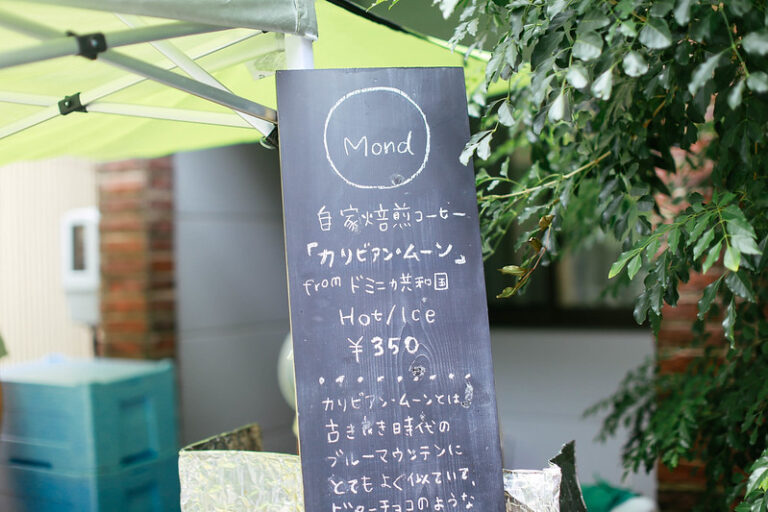 Mond
自家焙煎コーヒー
「カリビアン・ムーン」
from ドミニカ共和国
Hot/Ice
¥350
カリビアン・ムーンとは、
古き良き時代の
ブルーマウンテンに
とてもよく似ていて、
ビターチョコのような